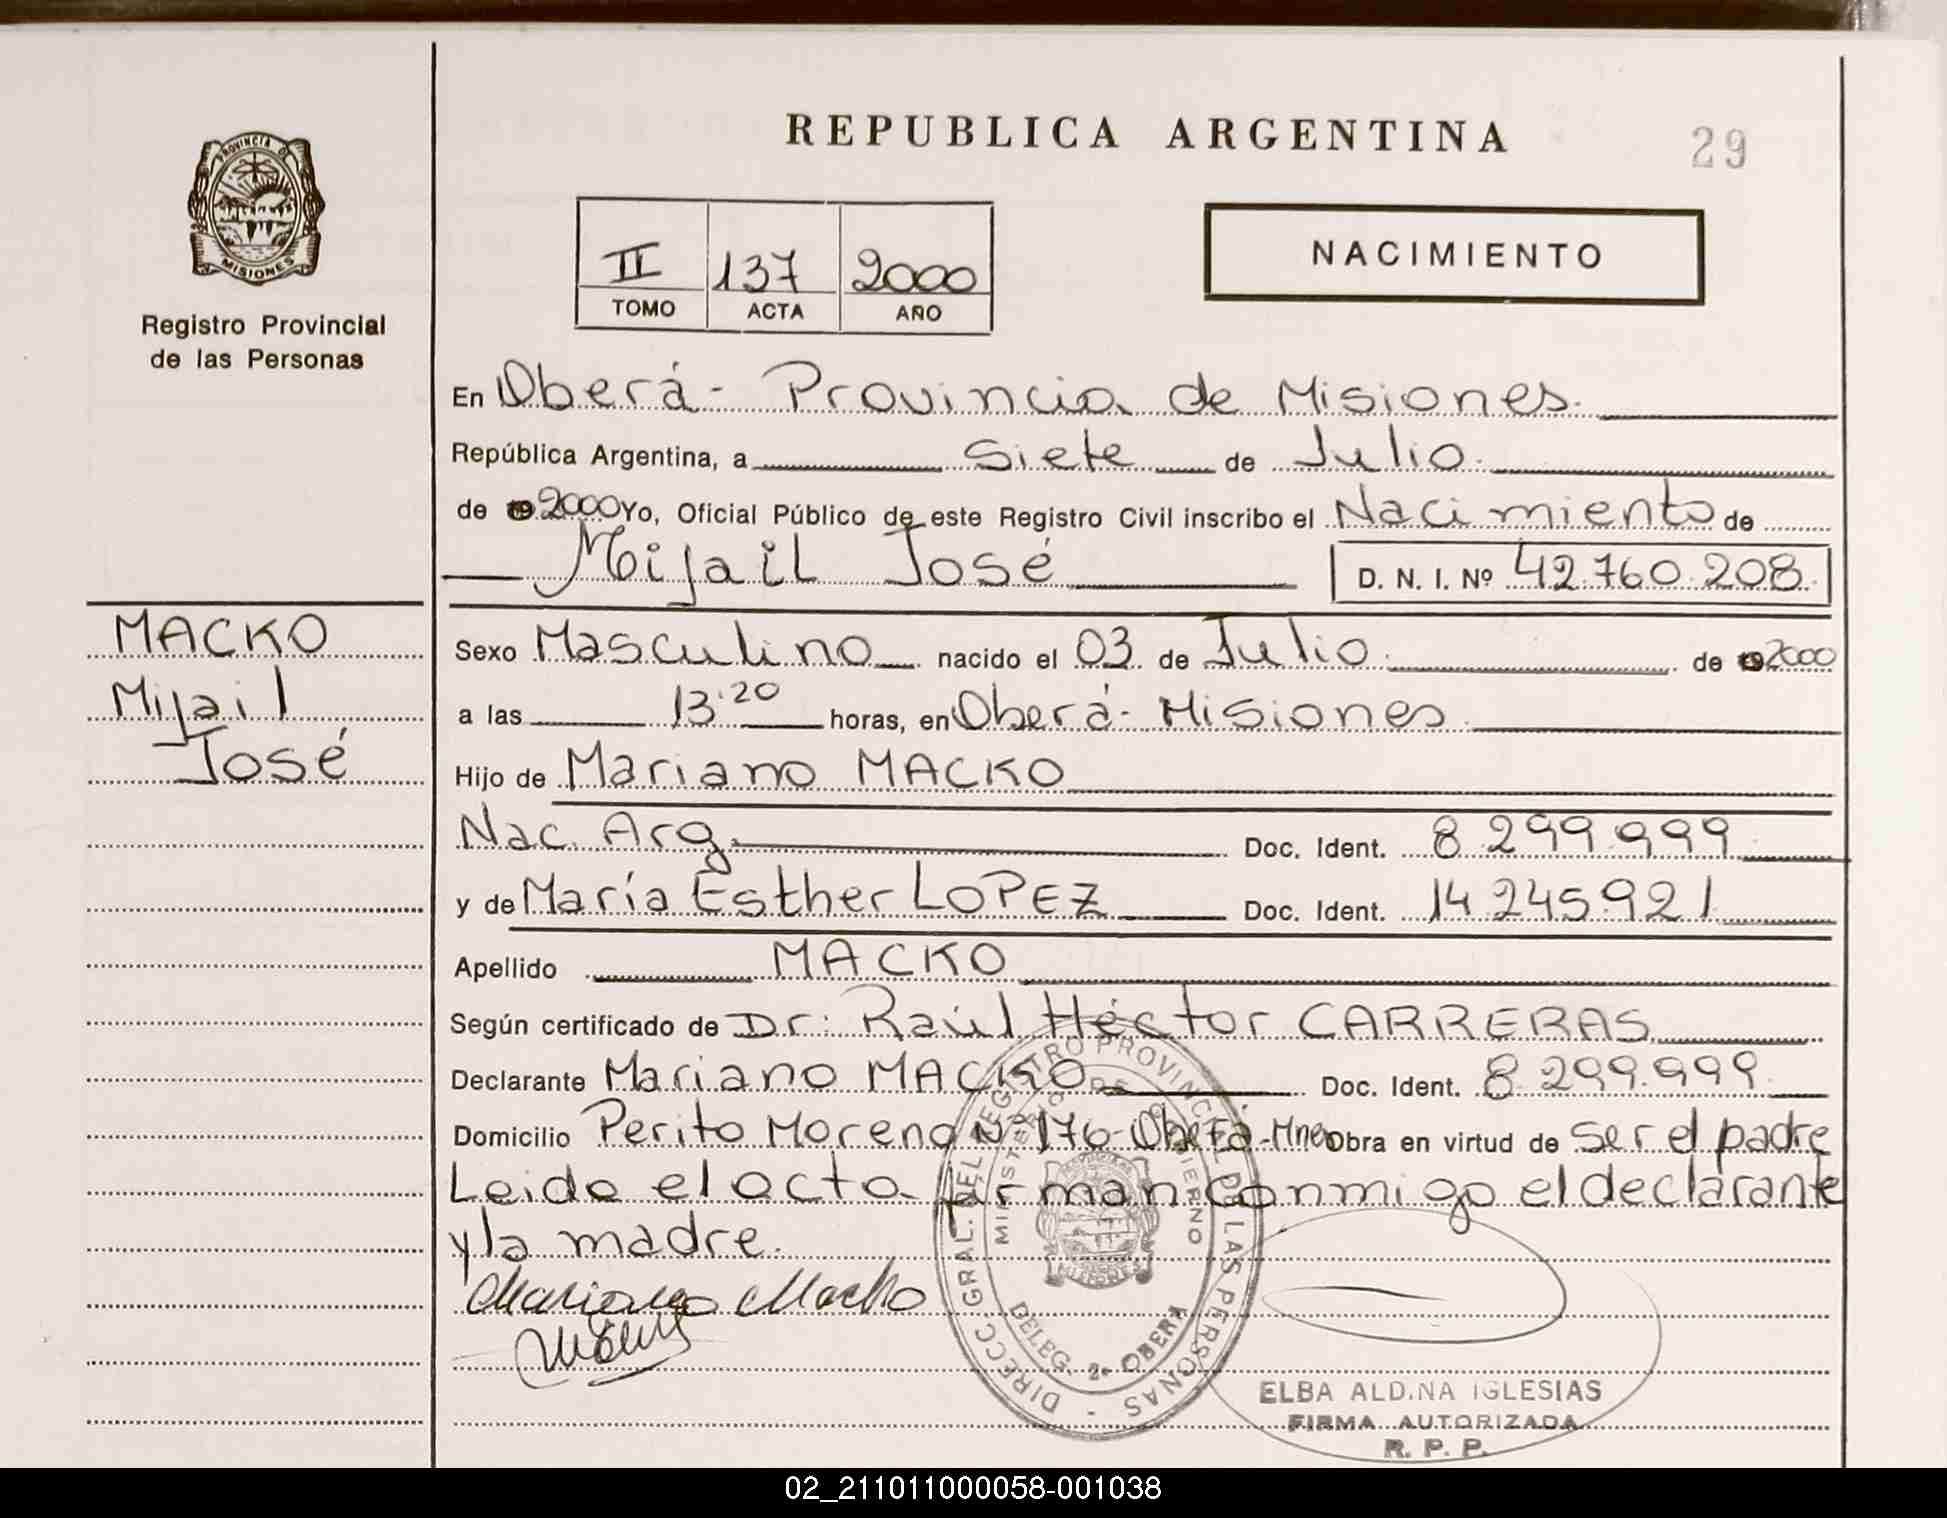 REPUBLICA ARGENTINA
29
PROVINCIA DE
MISIONES
Registro Provincial
de las Personas
II 137 2000
TOMO ACTA AÑO
NACIMIENTO
En Oberá - Provincia de Misiones.
República Argentina, a Siete de Julio.
de 19 2000 Yo, Oficial Público de este Registro Civil inscribo el Nacimiento de
Mijail José D. N. I. Nº 42.760.208.
MACKO
Mijail
José
Sexo Masculino nacido el 03 de Julio. de 19 2000
a las 13:20 horas, en Oberá - Misiones.
Hijo de Mariano MACKO
Nac. Arg. Doc. Ident. 8.299.999
y de María Esther LOPEZ Doc. Ident. 14.245.921.
Apellido MACKO
Según certificado de Dr: Raúl Héctor CARRERAS
Declarante Mariano MACKO Doc. Ident. 8.299.999.
Domicilio Perito Moreno Nº 176 - Oberá - Mnes Obra en virtud de ser el padre
Leida el acta firman conmigo el declarante
y la madre.
Mariano Macko
DIRECC. GRAL. DEL REGISTRO PROVINCIAL DE LAS PERSONAS -
MINISTERIO DE GOBIERNO
MISIONES
DELEG. 2ª OBERA
ELBA ALDINA IGLESIAS
FIRMA AUTORIZADA
R. P. P.
02_211011000058-001038